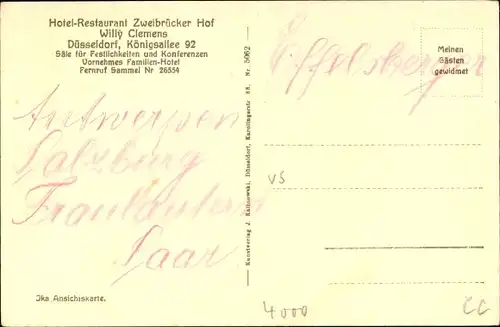 Hotel-Restaurant Zweibrücker Hof
Willy Clemens
Düsseldorf, Königsallee 92
Säle für Festlichkeiten und Konferenzen
Vornehmes Familien-Hotel
Fernruf Sammel Nr 26554
Antwerpen
Salzburg
Fraulautern
Saar
Jka Ansichtskarte.
Kunstverlag J. Kaltnowski, Düsseldorf, Karolingerstr 88. Nr. 5062
Effelsberger
Meinen
Gästen
gewidmet
VS
4000
CC